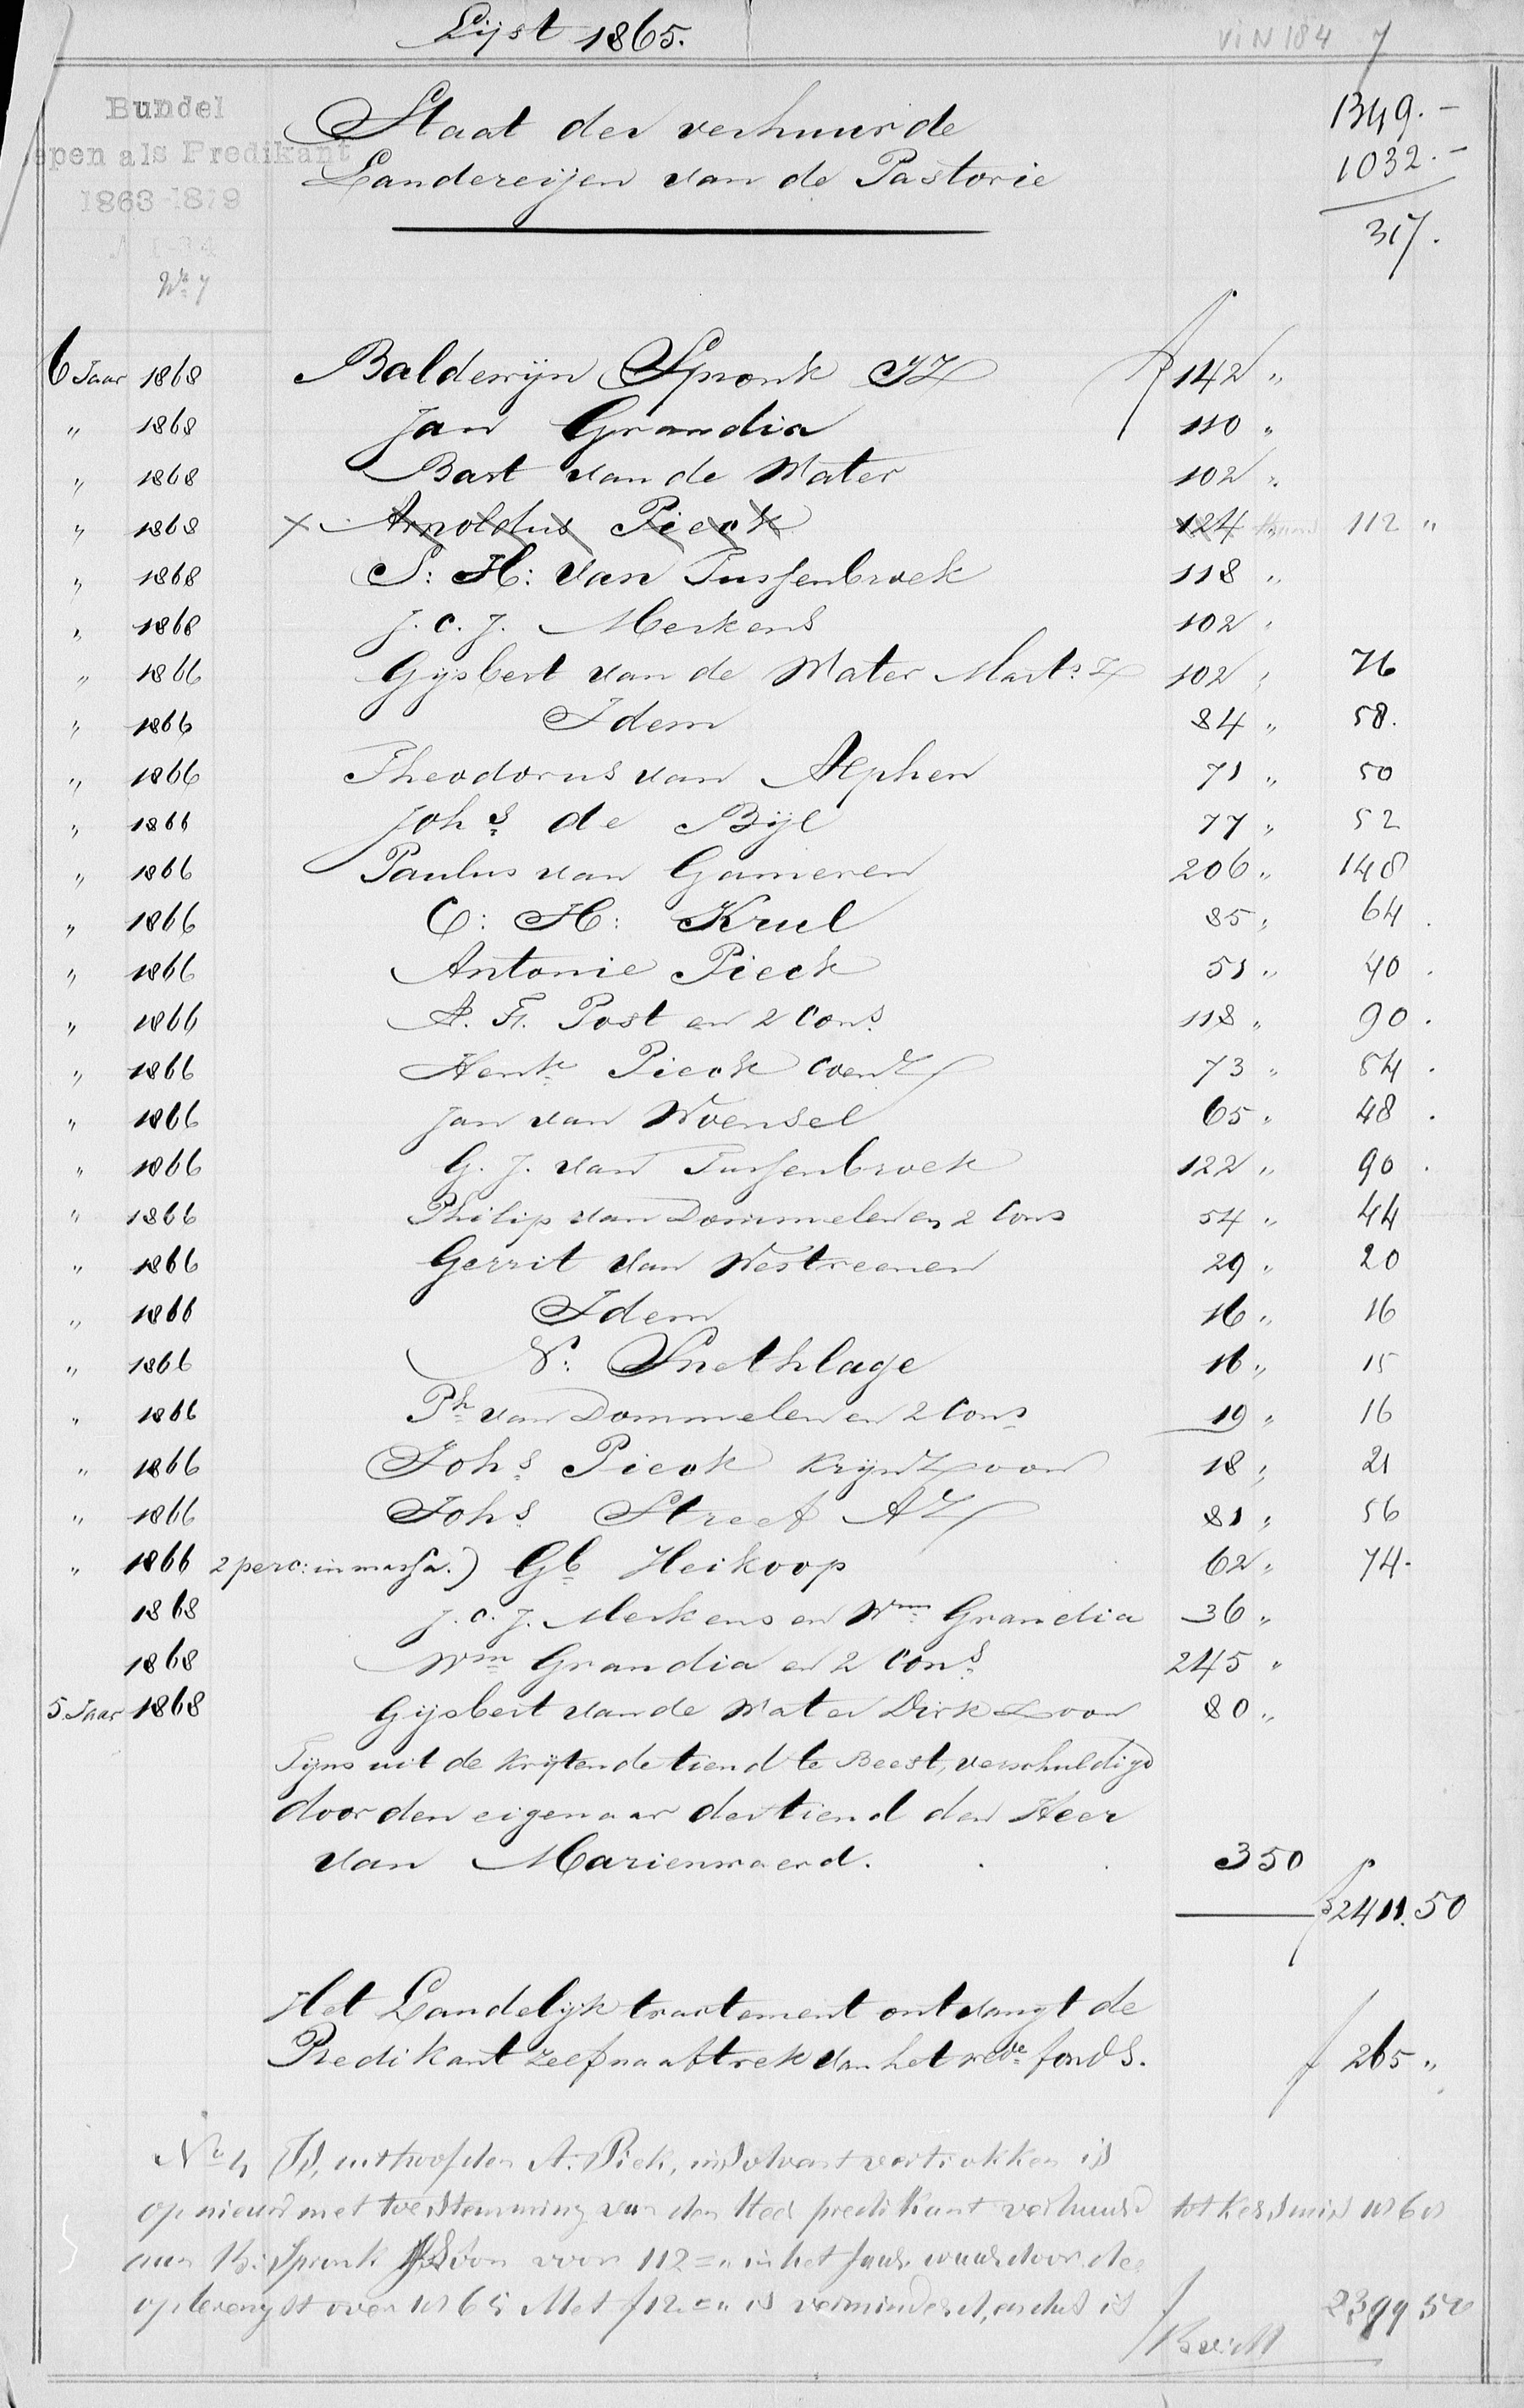 Lijst 1865.
VIN 184 7
Bundel
epen als Predikant
1863-1879
No 7
Staat der verhuurde
Landereijen van de Pastorie
1349.-
1032.-
317.
6 Jaar 1868 Baldewijn Spronk JZ f 142 "
" 1868 Jan Grandia 110 "
" 1868 Bart van de Water 102 "
" 1868 x Arnoldus Pieck 124 112 "
" 1868 S: H: van Tussenbroek 118 "
" 1868 J. C. J. Merkens 102 "
" 1866 Gijsbert van de Water Marts Z 102 " 76
" 1866 Idem 84 " 58.
" 1866 Theodorus van Alphen 71 " 50
" 1866 Johs de Bijl 77 " 52
" 1866 Paulus van Gameren 206 " 148
" 1866 C: H: Krul 85 " 64 .
" 1866 Antonie Pieck 51 " 40 .
" 1866 A. F. Post en 2 Cons 118 " 90 .
" 1866 Henk Pieck CoenZ 73 " 54 .
" 1866 Jan van Woensel 65 " 48 .
" 1866 G. J. van Tussenbroek 122 " 90 .
" 1866 Philip van Dommelen en 2 Cons 54 " 44
" 1866 Gerrit van Westreenen 29 " 20
" 1866 Idem 16 " 16
" 1866 N: Snethlage 16 " 15
" 1866 Ph van Dommelen en 2 Cons 19 " 16
" 1866 Johs Pieck KrijnZoon 18 " 21
" 1866 Johs Streef AZ 81 " 56
" 1866 2 perc: in massa.) Gb Heikoop 62 " 74.
1868 J. C. J. Merkens en Wm Grandia 36 "
1868 Wm Grandia en 2 Cons 245 "
5 Jaar 1868 Gijsbert van de Water Dirk Zoon 80 "
Tijns uit de Krijtende tiend te Beest, verschuldigd
door den eigenaar der tiend den Heer
van Marienwaerd. . . 3 50
f 2411.50
Het Landelijk tractement ontvangt de
Predikant zelf na aftrek van het wede fonds. f 265 "
No 4 Is, uithoofde A. Piek, insolvent vertrokken is
op nieuw met toestemming van den Heer predikant verhuurd tot Kersmis 1868
aan B: Spronk JZoon voor 112 = " in het Jaar waardoor de
opbrengst over 1865 Met f 12 = " is verminderd, en dus is f 2399 50